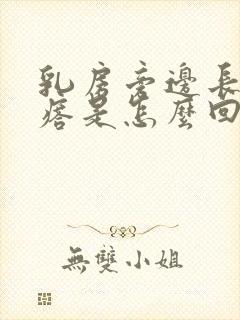 乳房旁邊長
痞是怎麼回
無雙小姐